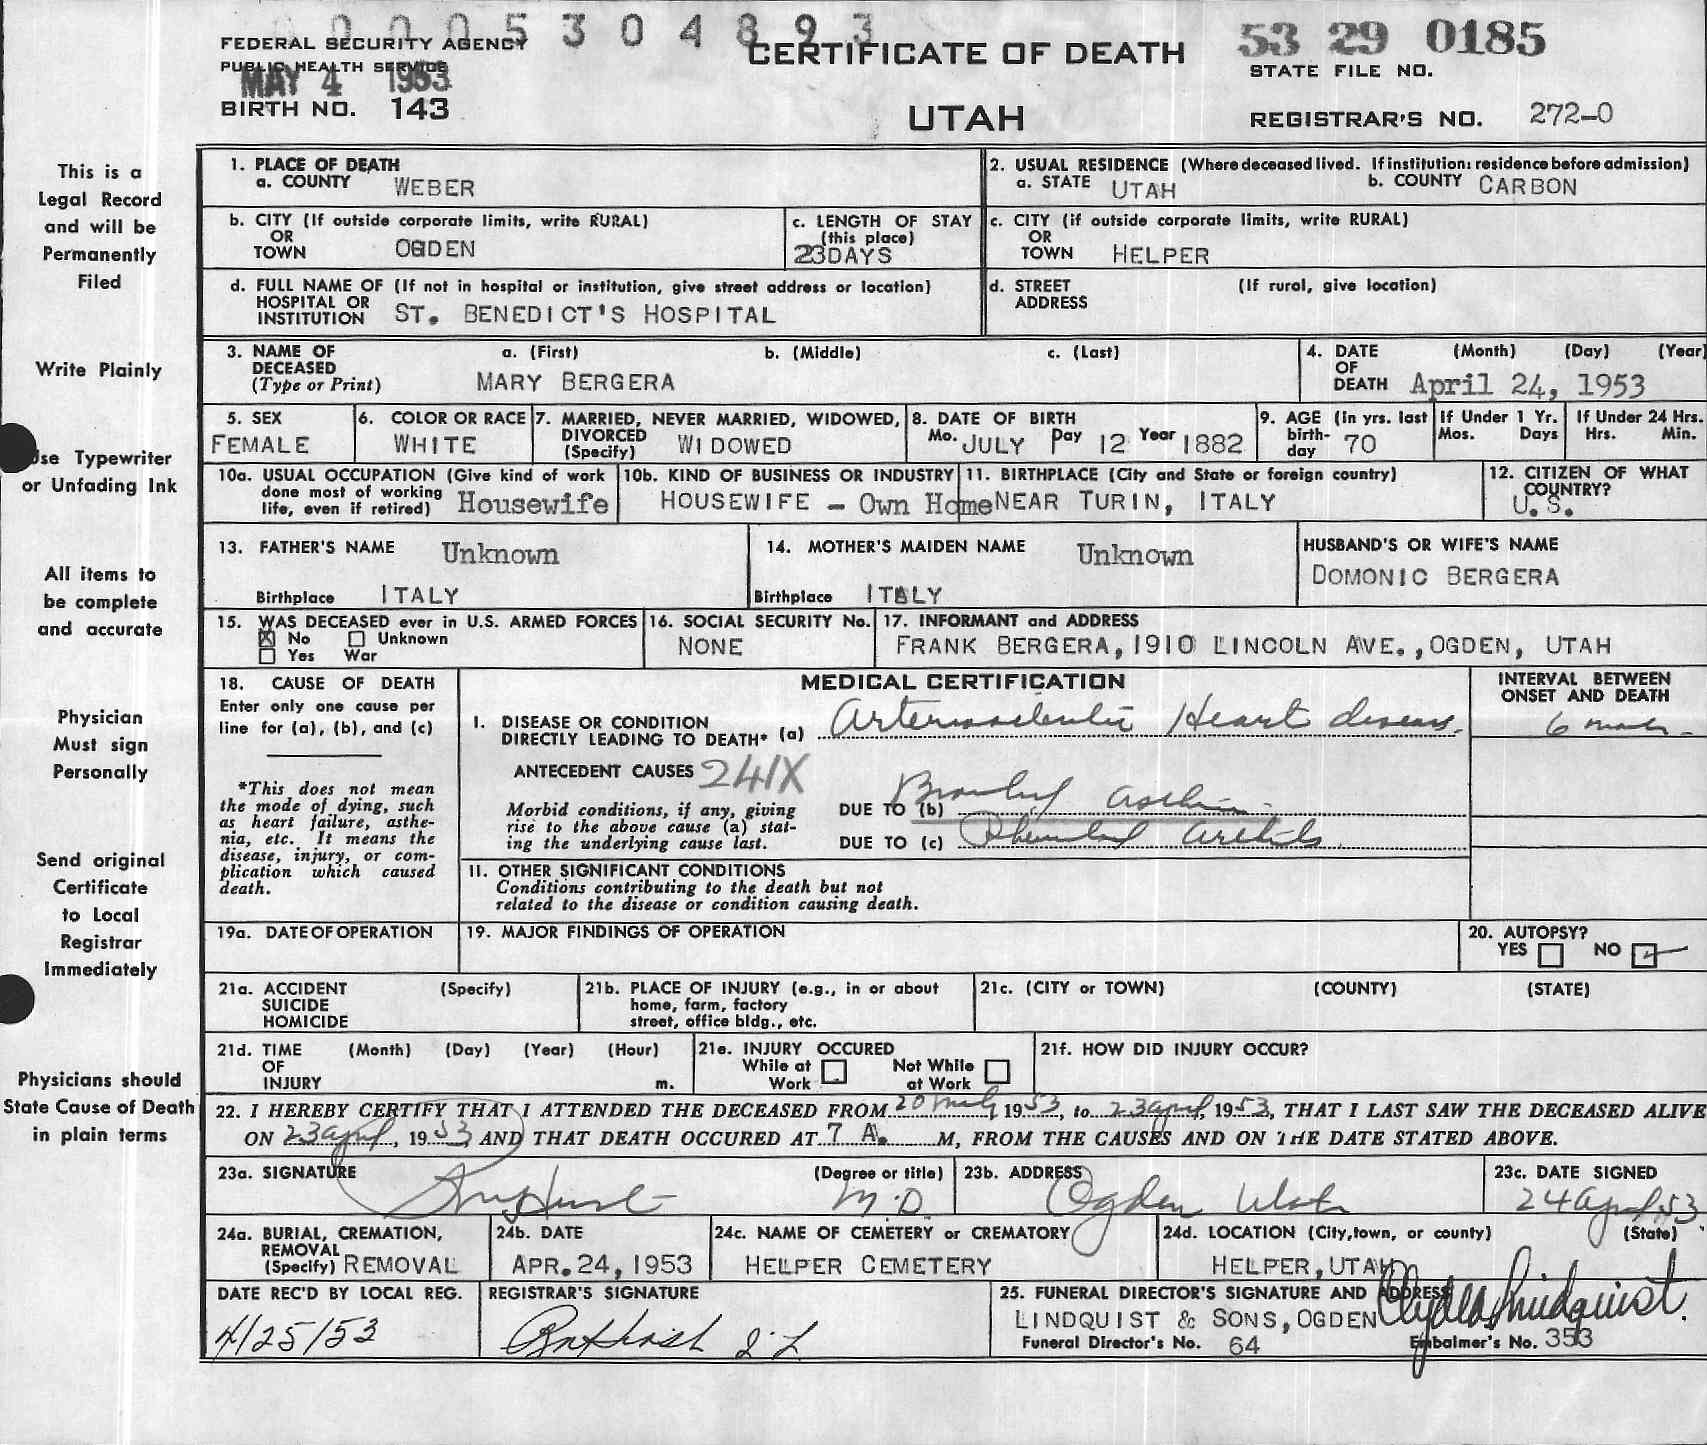 0005304893
FEDERAL SECURITY AGENCY
PUBLIC HEALTH SERVICE
MAY 4 1953
BIRTH NO. 143
CERTIFICATE OF DEATH
UTAH
53 29 0185
STATE FILE NO.
REGISTRAR'S NO. 272-0
This is a
Legal Record
and will be
Permanently
Filed
Write Plainly
Use Typewriter
or Unfading Ink
All items to
be complete
and accurate
Physician
Must sign
Personally
Send original
Certificate
to Local
Registrar
Immediately
Physicians should
State Cause of Death
in plain terms
1. PLACE OF DEATH
a. COUNTY WEBER
2. USUAL RESIDENCE (Where deceased lived. If institution: residence before admission)
a. STATE UTAH b. COUNTY CARBON
b. CITY (If outside corporate limits, write RURAL)
OR
TOWN OGDEN
c. LENGTH OF STAY
(this place)
23DAYS
c. CITY (if outside corporate limits, write RURAL)
OR
TOWN HELPER
d. FULL NAME OF (If not in hospital or institution, give street address or location)
HOSPITAL OR
INSTITUTION ST. BENEDICT'S HOSPITAL
d. STREET (If rural, give location)
ADDRESS
3. NAME OF a. (First) b. (Middle) c. (Last)
DECEASED
(Type or Print) MARY BERGERA
4. DATE (Month) (Day) (Year)
OF
DEATH April 24, 1953
5. SEX
FEMALE
6. COLOR OR RACE
WHITE
7. MARRIED, NEVER MARRIED, WIDOWED,
DIVORCED
(Specify) WIDOWED
8. DATE OF BIRTH
Mo. JULY Day 12 Year 1882
9. AGE (in yrs. last
birth-
day 70
If Under 1 Yr.
Mos. Days
If Under 24 Hrs.
Hrs. Min.
10a. USUAL OCCUPATION (Give kind of work
done most of working
life, even if retired) Housewife
10b. KIND OF BUSINESS OR INDUSTRY
HOUSEWIFE - Own Home
11. BIRTHPLACE (City and State or foreign country)
NEAR TURIN, ITALY
12. CITIZEN OF WHAT
COUNTRY?
U.S.
13. FATHER'S NAME Unknown
Birthplace ITALY
14. MOTHER'S MAIDEN NAME Unknown
Birthplace ITALY
HUSBAND'S OR WIFE'S NAME
DOMONIC BERGERA
15. WAS DECEASED ever in U.S. ARMED FORCES
X No Unknown
Yes War
16. SOCIAL SECURITY No.
NONE
17. INFORMANT and ADDRESS
FRANK BERGERA, 1910 LINCOLN AVE., OGDEN, UTAH
18. CAUSE OF DEATH
Enter only one cause per
line for (a), (b), and (c)
*This does not mean
the mode of dying, such
as heart failure, asthe-
nia, etc. It means the
disease, injury, or com-
plication which caused
death.
MEDICAL CERTIFICATION
INTERVAL BETWEEN
ONSET AND DEATH
I. DISEASE OR CONDITION
DIRECTLY LEADING TO DEATH* (a) Arteriosclerotic Heart disease.
6
ANTECEDENT CAUSES 241X
Morbid conditions, if any, giving
rise to the above cause (a) stat-
ing the underlying cause last.
DUE TO (b) Bronchial asthma
DUE TO (c) Rheumatoid Arthritis
II. OTHER SIGNIFICANT CONDITIONS
Conditions contributing to the death but not
related to the disease or condition causing death.
19a. DATE OF OPERATION
19. MAJOR FINDINGS OF OPERATION
20. AUTOPSY?
YES NO
21a. ACCIDENT (Specify)
SUICIDE
HOMICIDE
21b. PLACE OF INJURY (e.g., in or about
home, farm, factory
street, office bldg., etc.
21c. (CITY or TOWN) (COUNTY) (STATE)
21d. TIME (Month) (Day) (Year) (Hour)
OF
INJURY m.
21e. INJURY OCCURED
While at Not While
Work at Work
21f. HOW DID INJURY OCCUR?
22. I HEREBY CERTIFY THAT I ATTENDED THE DECEASED FROM 20 , 1953, to 23 April, 1953, THAT I LAST SAW THE DECEASED ALIVE
ON 23 April, 1953, AND THAT DEATH OCCURED AT 7 A. M, FROM THE CAUSES AND ON THE DATE STATED ABOVE.
23a. SIGNATURE (Degree or title)
M.D.
23b. ADDRESS
Ogden Utah
23c. DATE SIGNED
24 April 53
24a. BURIAL, CREMATION,
REMOVAL
(Specify) REMOVAL
24b. DATE
APR. 24, 1953
24c. NAME OF CEMETERY or CREMATORY
HELPER CEMETERY
24d. LOCATION (City, town, or county) (State)
HELPER, UTAH
DATE REC'D BY LOCAL REG.
4/25/53
REGISTRAR'S SIGNATURE
25. FUNERAL DIRECTOR'S SIGNATURE AND ADDRESS
LINDQUIST & SONS, OGDEN Clyde Lindquist.
Funeral Director's No. 64 Embalmer's No. 353